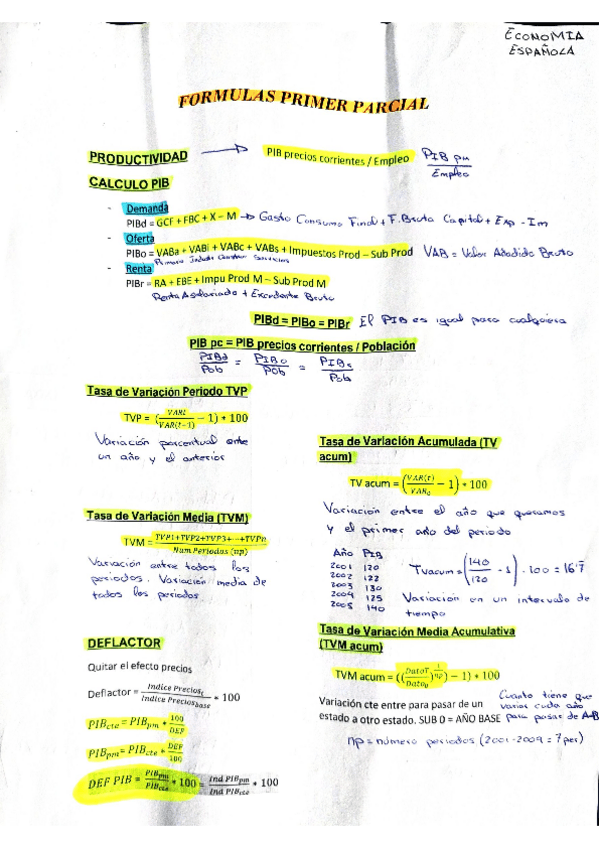 ECONOMIA
ESPAÑOLA
FORMULAS PRIMER PARCIAL
PRODUCTIVIDAD → PIB precios corrientes / Empleo PIB pm / Empleo
CALCULO PIB
- Demanda
PIBd = GCF + FBC + X – M → Gasto Consumo Final + F. Bruta Capital + Exp - Im
- Oferta
PIBo = VABa + VABi + VABc + VABs + Impuestos Prod – Sub Prod VAB = Valor Añadido Bruto
Primario Indust Construr Servicios
- Renta
PIBr = RA + EBE + Impu Prod M – Sub Prod M
Renta Asalariado + Excedente Bruto
PIBd = PIBo = PIBr El PIB es igual para cualquiera
PIB pc = PIB precios corrientes / Población
PIBd / Pob = PIBo / Pob = PIBr / Pob
Tasa de Variación Periodo TVP
TVP = (VARt / VAR(t−1) − 1) * 100
Variación porcentual entre
un año y el anterior
Tasa de Variación Media (TVM)
TVM = TVP1+TVP2+TVP3+⋯+TVPn / Num Periodos (np)
Variación entre todos los
periodos. Variación media de
todos los periodos
DEFLACTOR
Quitar el efecto precios
Deflactor = Indice Precios t / Indice Precios base * 100
PIBcte = PIBpm * 100 / DEF
PIBpm = PIBcte * DEF / 100
DEF PIB = PIBpm / PIBcte * 100 = Ind PIBpm / Ind PIBcte * 100
Tasa de Variación Acumulada (TV
acum)
TV acum = (VAR(t) / VAR0 − 1) * 100
Variación entre el año que queramos
y el primer año del periodo
Año PIB
2001 120
2002 122
2003 130
2004 125
2005 140
TVacum = (140 / 120 - 1) · 100 = 16'7
Variación en un intervalo de
tiempo
Tasa de Variación Media Acumulativa
(TVM acum)
TVM acum = ((DatoT / Dato0)^(1/np) − 1) * 100
Variación cte entre para pasar de un
estado a otro estado. SUB 0 = AÑO BASE
Cuanto tiene que
variar cada año
para pasar de A→B
np = número periodos (2001-2009 = 7 per)